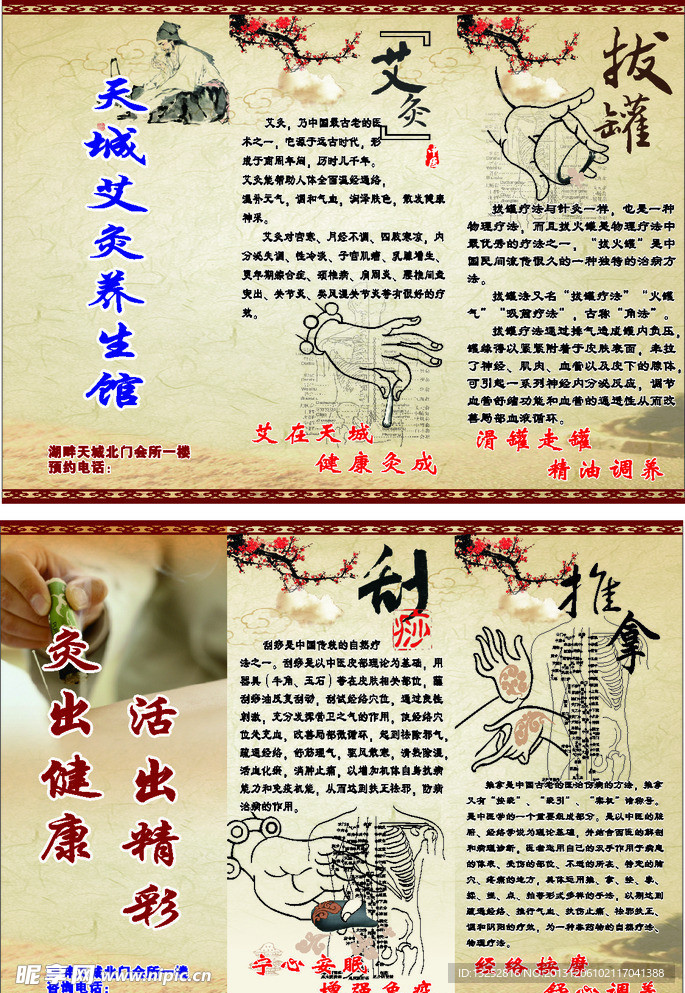 天城艾灸养生馆
湖畔天城北门会所一楼
预约电话：
『艾灸』
艾灸，乃中国最古老的医
术之一，它源于远古时代，形
成于商周年间，历时几千年。
艾灸能帮助人体全面温经通络，
温补元气，调和气血，润泽肤色，散发健康
神采。
艾灸对宫寒、月经不调、四肢寒凉，内
分泌失调、性冷淡、子宫肌瘤、乳腺增生、
更年期综合症、颈椎病、肩周炎、腰椎间盘
突出、关节炎、类风湿关节炎等有很好的疗
效。
艾在天城
健康灸成
拔罐
拔罐疗法与针灸一样，也是一种
物理疗法，而且拔火罐是物理疗法中
最优秀的疗法之一，“拔火罐”是中
国民间流传很久的一种独特的治病方
法。
拔罐法又名“拔罐疗法”“火罐
气”“吸筒疗法”，古称“角法”。
拔罐疗法通过排气造成罐内负压，
罐缘得以紧紧附着于皮肤表面，牵拉
了神经、肌肉、血管以及皮下的腺体，
可引起一系列神经内分泌反应，调节
血管舒缩功能和血管的通透性从而改
善局部血液循环。
滑罐走罐
精油调养
灸出健康
活出精彩
天城北门会所一楼
咨询电话：
刮痧
刮痧是中国传统的自然疗
法之一。刮痧是以中医皮部理论为基础，用
器具（牛角、玉石）等在皮肤相关部位，蘸
刮痧油反复刮动，刮试经络穴位，通过良性
刺激，充分发挥营卫之气的作用，使经络穴
位处充血，改善局部微循环，起到祛除邪气，
疏通经络，舒筋理气，驱风散寒，清热除湿，
活血化瘀，消肿止痛，以增加机体自身抗病
能力和免疫机能，从而达到扶正祛邪，防病
治病的作用。
宁心安眠
增强免疫
推拿
推拿是中国古老的医治伤病的方法，推拿
又有“按跷”、“跷引”、“案杌”诸称号。
是中医学的一个重要组成部分。是以中医的脏
腑、经络学说为理论基础，并结合西医的解剖
和病理诊断。医者运用自己的双手作用于病患
的体表、受伤的部位、不适的所在、特定的腧
穴、疼痛的地方，具体运用推、拿、按、摩、
揉、捏、点、拍等形式多样的手法，以期达到
疏通经络、推行气血、扶伤止痛、祛邪扶正、
调和阴阳的疗效，为一种非药物的自然疗法、
物理疗法。
经络按摩
轻心调养
昵享网 www.nipic.cn
ID:13252816 NO:20131206102117041388